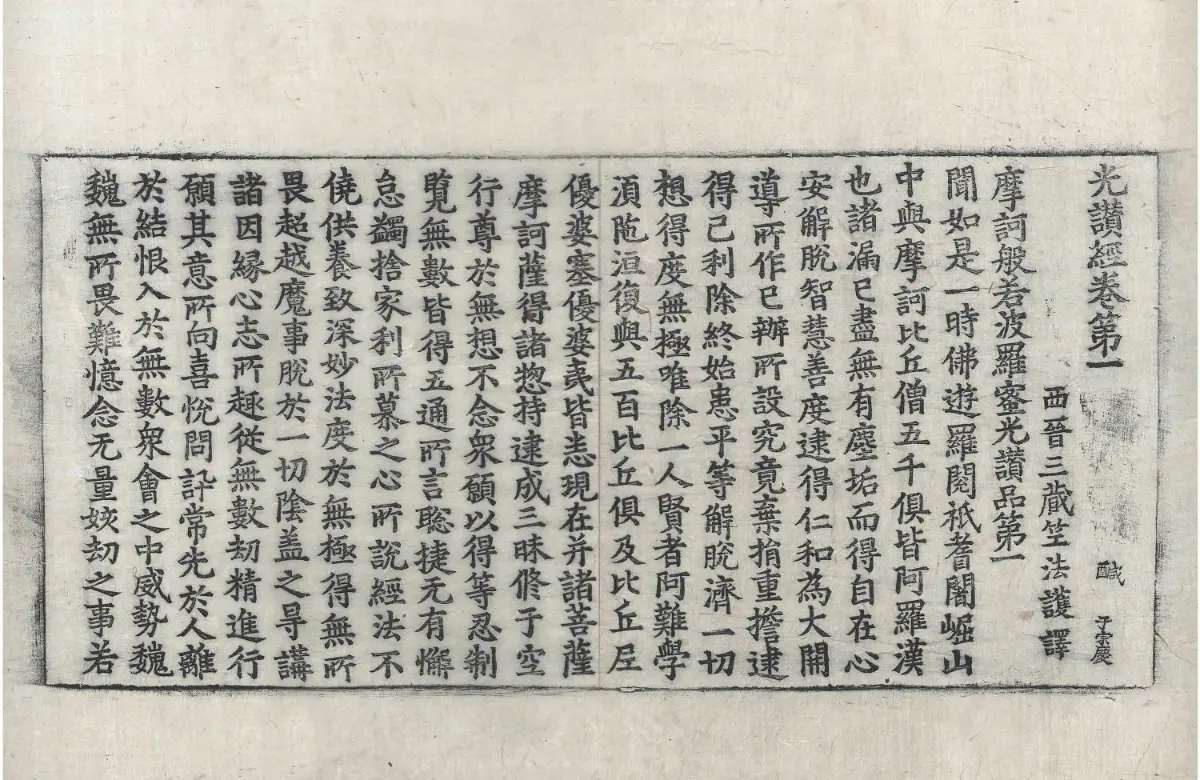 光讚經卷第一
醎
子宗慶
西晉三藏竺法護譯
摩訶般若波羅蜜光讚品第一
聞如是一時佛遊羅閱祇耆闍崛山
中與摩訶比丘僧五千俱皆阿羅漢
也諸漏已盡無有塵垢而得自在心
安解脫智慧善度逮得仁和為大開
導所作已辦所設究竟棄捐重擔逮
得己利除終始患平等解脫濟一切
想得度無極唯除一人賢者阿難學
湏陁洹復與五百比丘俱及比丘尼
優婆塞優婆夷皆悉現在并諸菩薩
摩訶薩得諸惣持逮成三昧脩于空
行尊於無想不念衆願以得等忍制
覽無數皆得五通所言聡捷无有懈
怠蠲捨家利所慕之心所說經法不
僥供養致深妙法度於無極得無所
畏超越魔事脫於一切陰盖之㝵講
諸因緣心志所趣從無數劫精進行
願其意所向喜悅問訊常先於人離
於結恨入於無數衆會之中威勢巍
巍無所畏難憶念无量姟劫之事若